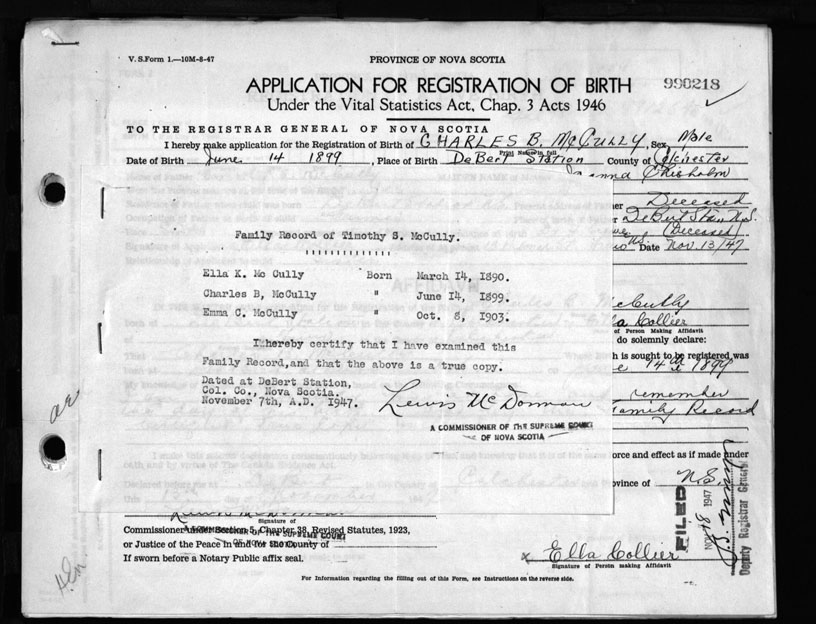 V. S. Form 1.—10M-8-47
PROVINCE OF NOVA SCOTIA
APPLICATION FOR REGISTRATION OF BIRTH
990218
Under the Vital Statistics Act, Chap. 3 Acts 1946
TO THE REGISTRAR GENERAL OF NOVA SCOTIA
I hereby make application for the Registration of Birth of CHARLES B. McCULLY, Sex Male
Print Name in full
Date of Birth June 14 1899, Place of Birth DeBert Station County of Colchester
Chisholm
Deceased
DeBert Stn., N.S.
(Deceased)
Date Nov. 13/47
Family Record of Timothy S. McCully.
Ella K. Mc Cully Born March 14, 1890.
Charles B, McCully " June 14, 1899.
Emma C. McCully " Oct. 8, 1903.
I hereby certify that I have examined this
Family Record,and that the above is a true copy.
Dated at DeBert Station,
Col. Co., Nova Scotia.
November 7th, A.D. 1947.
Lewis McDorman
A COMMISSIONER OF THE SUPREME COURT
OF NOVA SCOTIA
McCully
Collier
of Person Making Affidavit
do solemnly declare:
h is sought to be registered was
14th 1899
remember
Family Record
orce and effect as if made under
ovince of N.S.
FILED
NOV 18 1947
Deputy Registrar General
Signature of
Commissioner under Section 5, Chapter 38, Revised Statutes, 1923,
A COMMISSIONER OF THE SUPREME COURT
or Justice of the Peace in and for the County of
OF NOVA SCOTIA
If sworn before a Notary Public affix seal.
x Ella Collier
Signature of Person making Affidavit
For Information regarding the filling out of this Form, see Instructions on the reverse side.